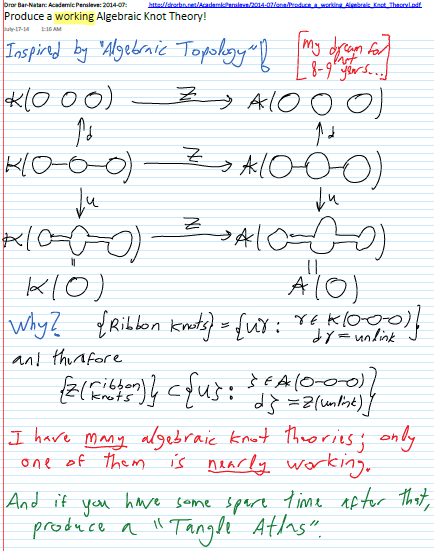 Dror Bar-Natan: Academic Pensieve: 2014-07: http://drorbn.net/AcademicPensieve/2014-07/one/Produce_a_working_Algebraic_Knot_Theory!.pdf
Produce a working Algebraic Knot Theory!
July-17-14 1:16 AM
Inspired by "Algebraic Topology"
[My dream for last 8-9 years...]
K(O O O) Z A(O O O)
d d
K(O-O-O) Z A(O-O-O)
u u
K( ) Z A( )
|| ||
K(O) A(O)
Why? {Ribbon knots} = {uγ : γ ∈ K(O-O-O) dγ = unlink}
and therefore
{Z(ribbon knots)} ⊂ {uζ : ζ ∈ A(O-O-O) dζ = Z(unlink)}
I have many algebraic knot theories; only
one of them is nearly working.
And if you have some spare time after that,
produce a "Tangle Atlas".